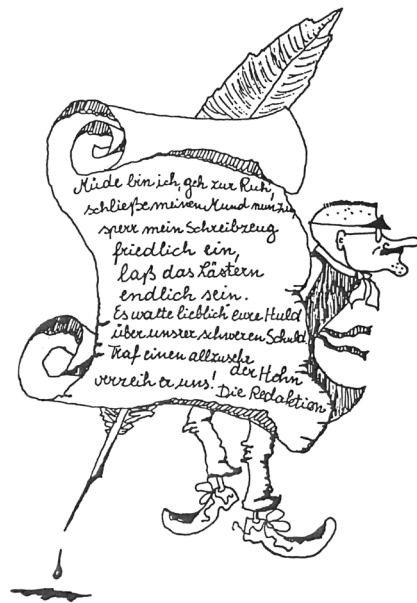 Müde bin ich, geh zur Ruh,
schließe meinen Mund nun zu
sperr mein Schreibzeug
friedlich ein,
laß das Lästern
endlich sein.
Es walte lieblich eure Huld
über unsrer schweren Schuld
Traf einen allzusehr
der Hohn
verzeih er uns!
Die Redaktion